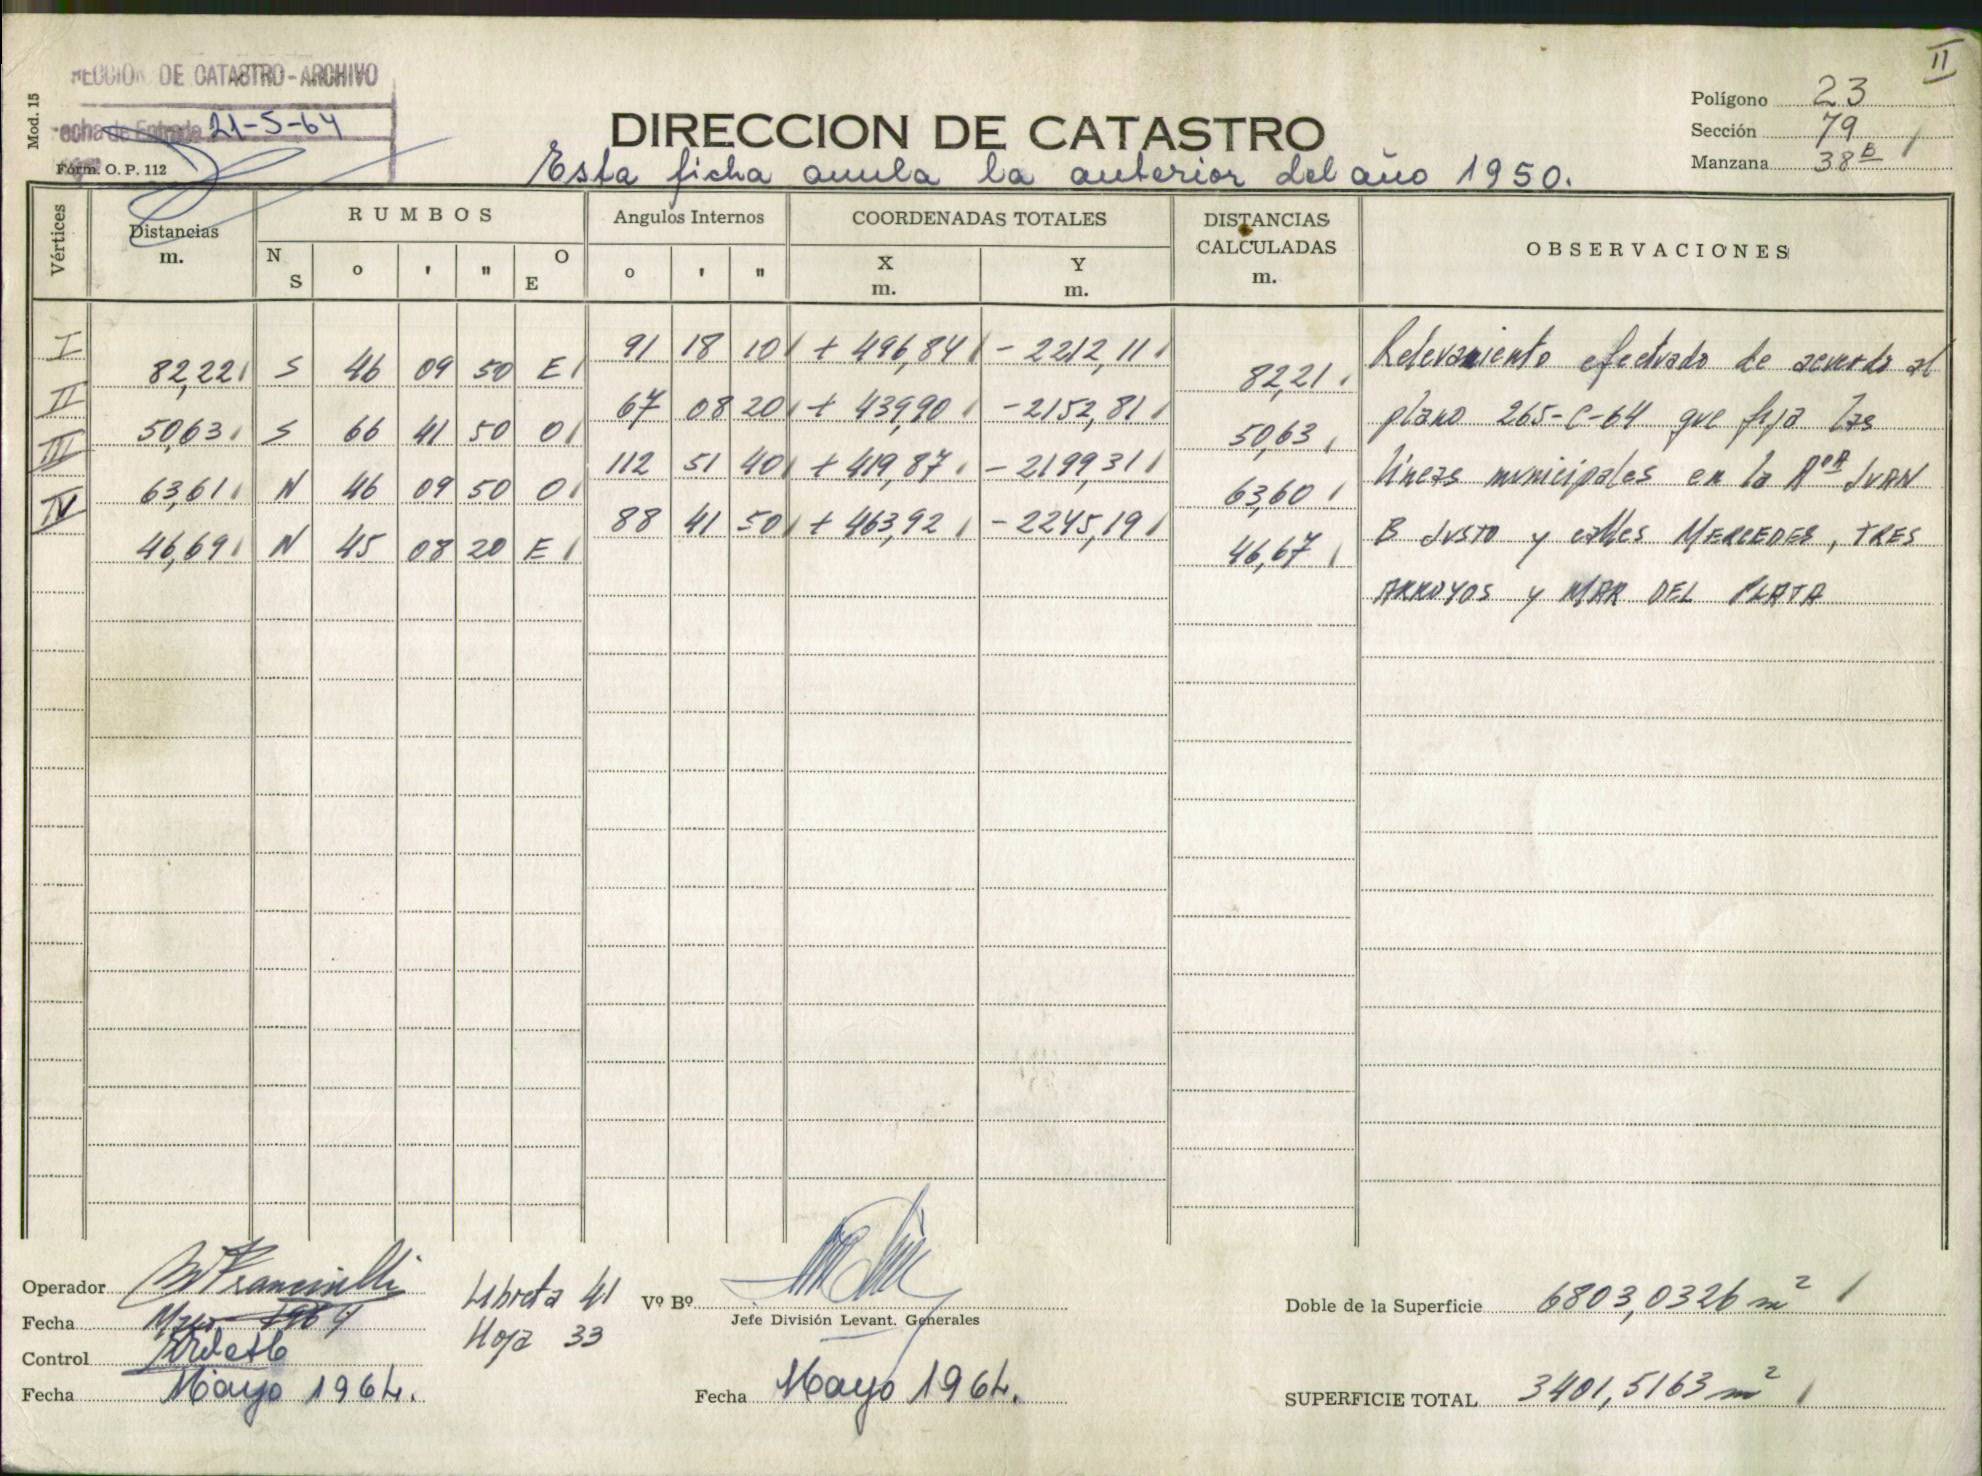 II
DE CATASTRO - ARCHIVO
Mod. 15
Fecha de Entrada 21-5-64
Form. O. P. 112
DIRECCION DE CATASTRO
Esta ficha anula la anterior del año 1950.
Polígono 23
Sección 79
Manzana 38 B
Vértices
Distancias m.
RUMBOS
N S ° ' " O E
Angulos Internos
° ' "
COORDENADAS TOTALES
X m. Y m.
DISTANCIAS CALCULADAS m.
OBSERVACIONES
I 91 18 10 + 496,84 - 2212,11
82,22 S 46 09 50 E 82,21
II 67 08 20 + 439,90 - 2152,81
50,63 S 66 41 50 O 50,63
III 112 51 40 + 419,87 - 2199,31
63,61 N 46 09 50 O 63,60
IV 88 41 50 + 463,92 - 2245,19
46,69 N 45 08 20 E 46,67
Relevamiento efectuado de acuerdo al
plano 265-C-64 que fija las
líneas municipales en la JUAN
B JUSTO y calles MERCEDES, TRES
ARROYOS y MAR DEL PLATA
Operador
Fecha Mayo 1964
Control
Fecha Mayo 1964.
Libreta 41
Hoja 33
Vº Bº
Jefe División Levant. Generales
Fecha Mayo 1964.
Doble de la Superficie 6803,0326 m²
SUPERFICIE TOTAL 3401,5163 m²